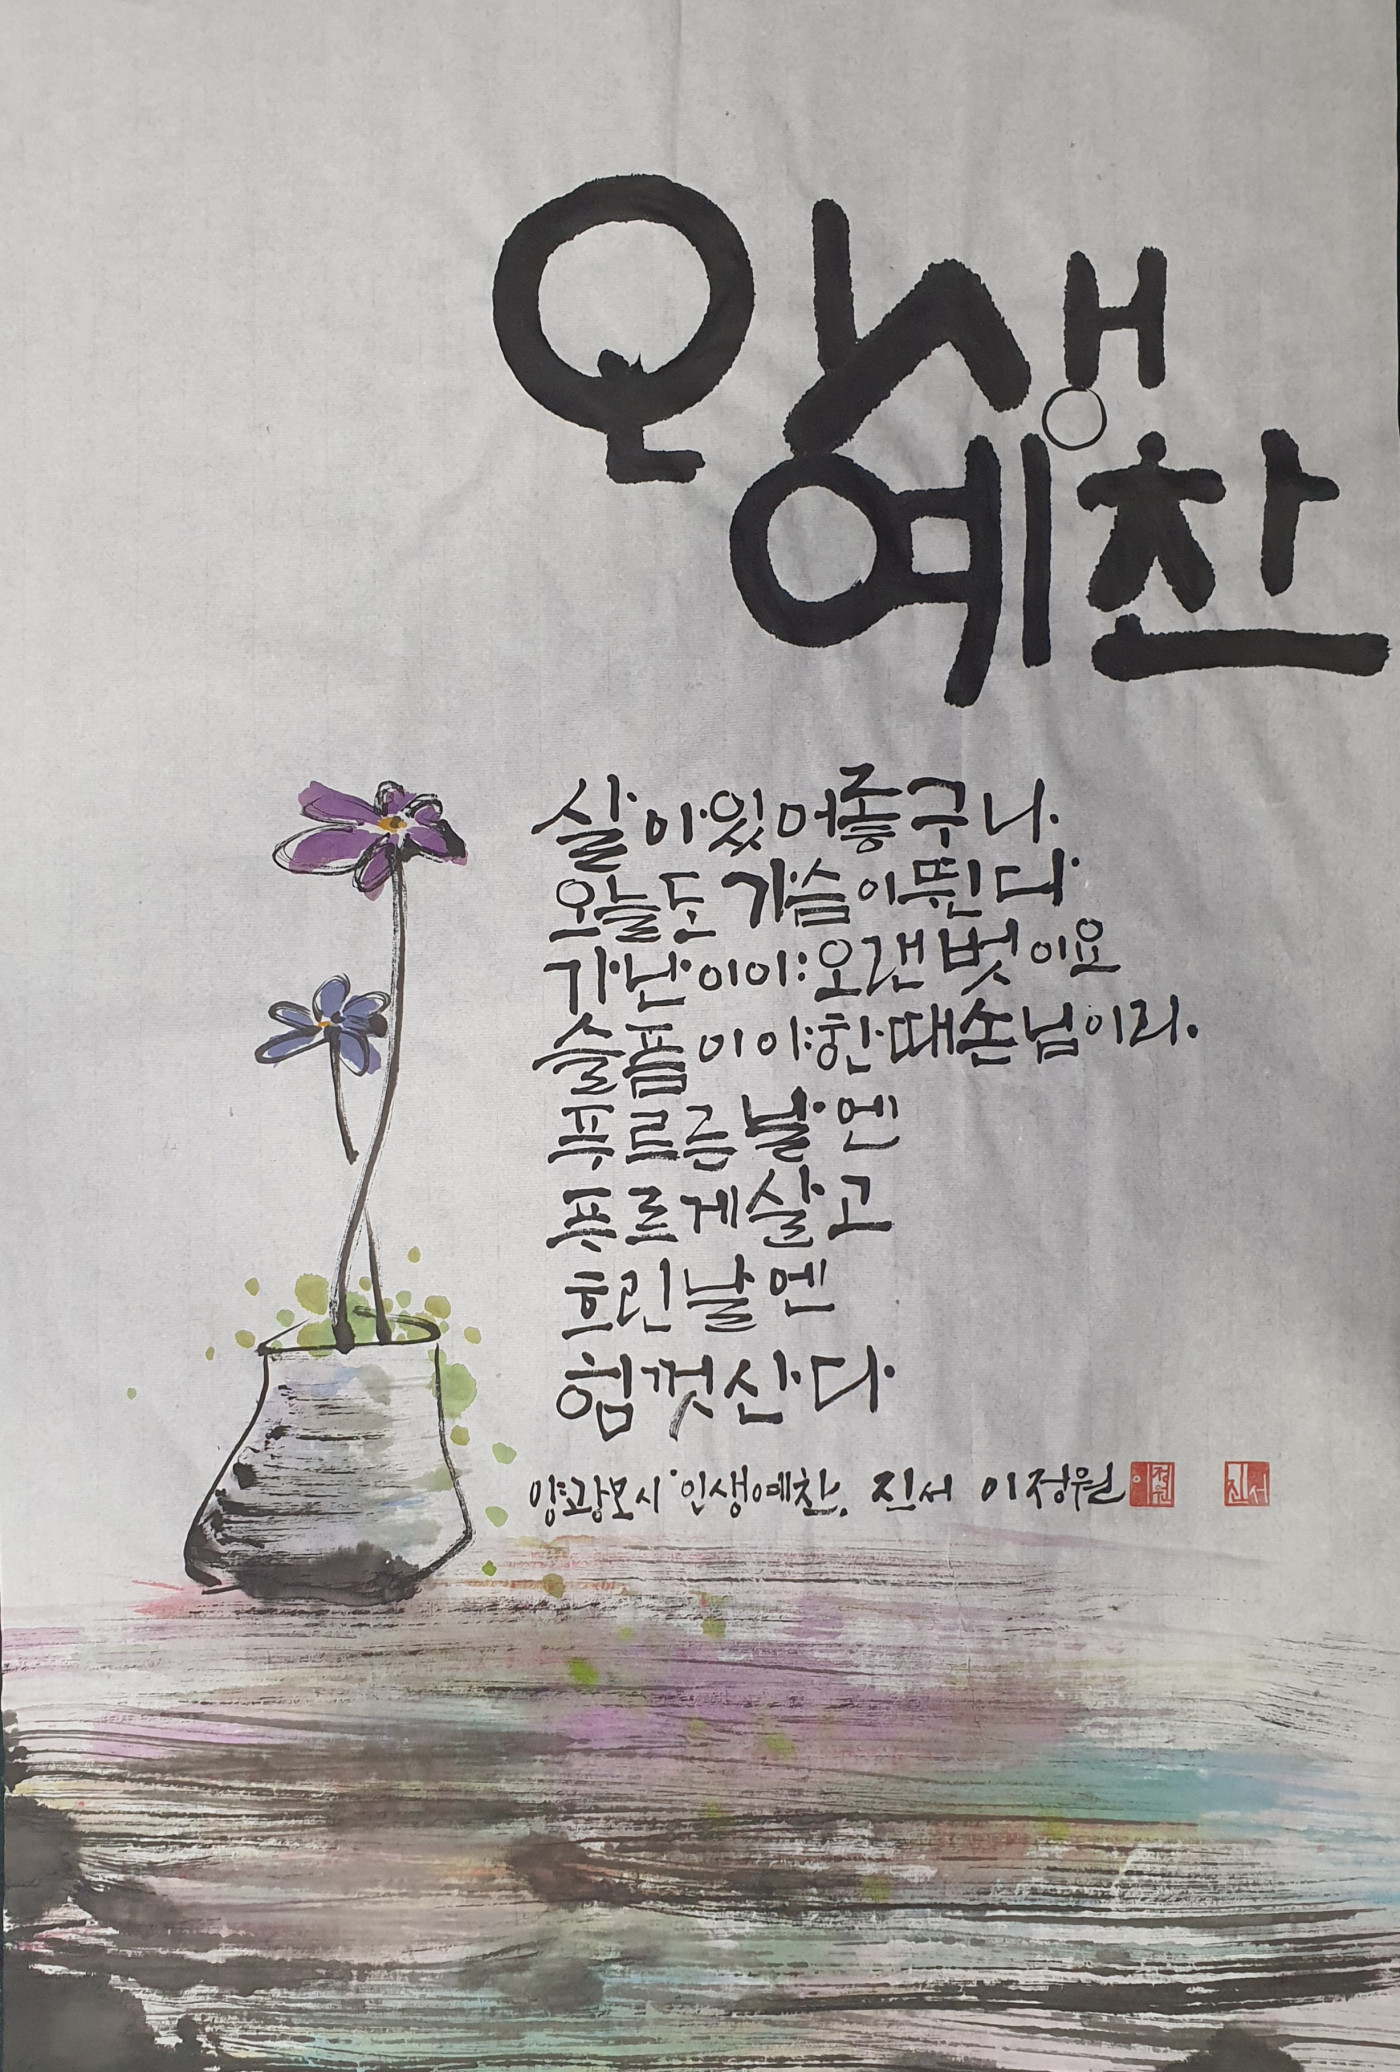 인생
예찬
살아있어좋구나
오늘도 가슴이뛴다
가난이야오랜벗이요
슬픔이야한때손님이라
푸르른날엔
푸르게살고
흐린날엔
힘껏산다
양광모시 '인생예찬, 진서 이정원 이정원 진서